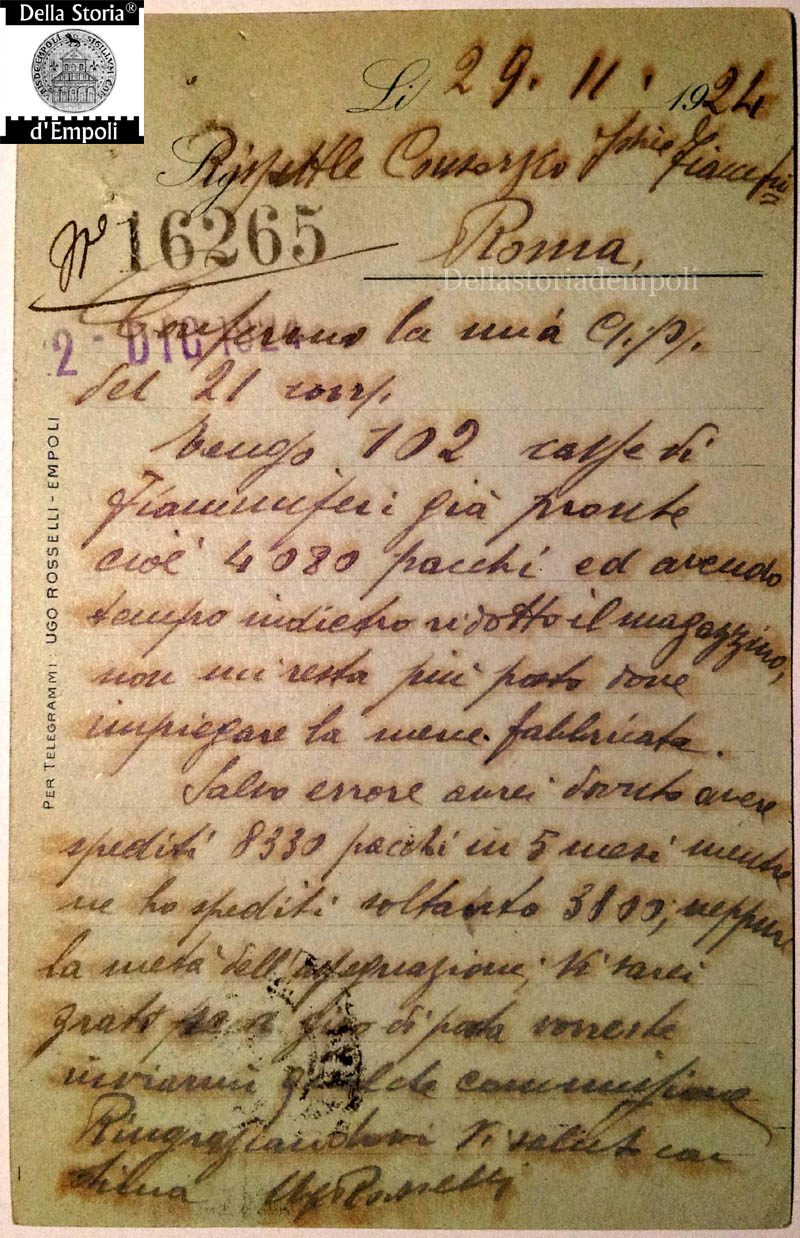 Della Storia®
SIGILLVM COM
d'Empoli
Li 29. 11. 1924
Rispettle Consorzio Indie Fiammifi
Roma,
No 16265
Dellastoriadempoli
2 - DIC 1924
Confermo la mia C.p.
del 21 corr.
Tengo 102 casse di
Fiammiferi già pronte
cioè 4080 pacchi ed avendo
tempo indietro ridotto il magazzino,
non mi resta più posto dove
impiegare la merce fabbricata.
Salvo errore avrei dovuto avere
spediti 8330 pacchi in 5 mesi mentre
ne ho spediti soltanto 3800, neppure
la metà dell'assegnazione, Vi sarei
grato se a giro di posta vorreste
inviarmi qualche commissione
Ringraziandovi Vi saluto con
stima Ugo Rosselli
PER TELEGRAMMI UGO ROSSELLI - EMPOLI